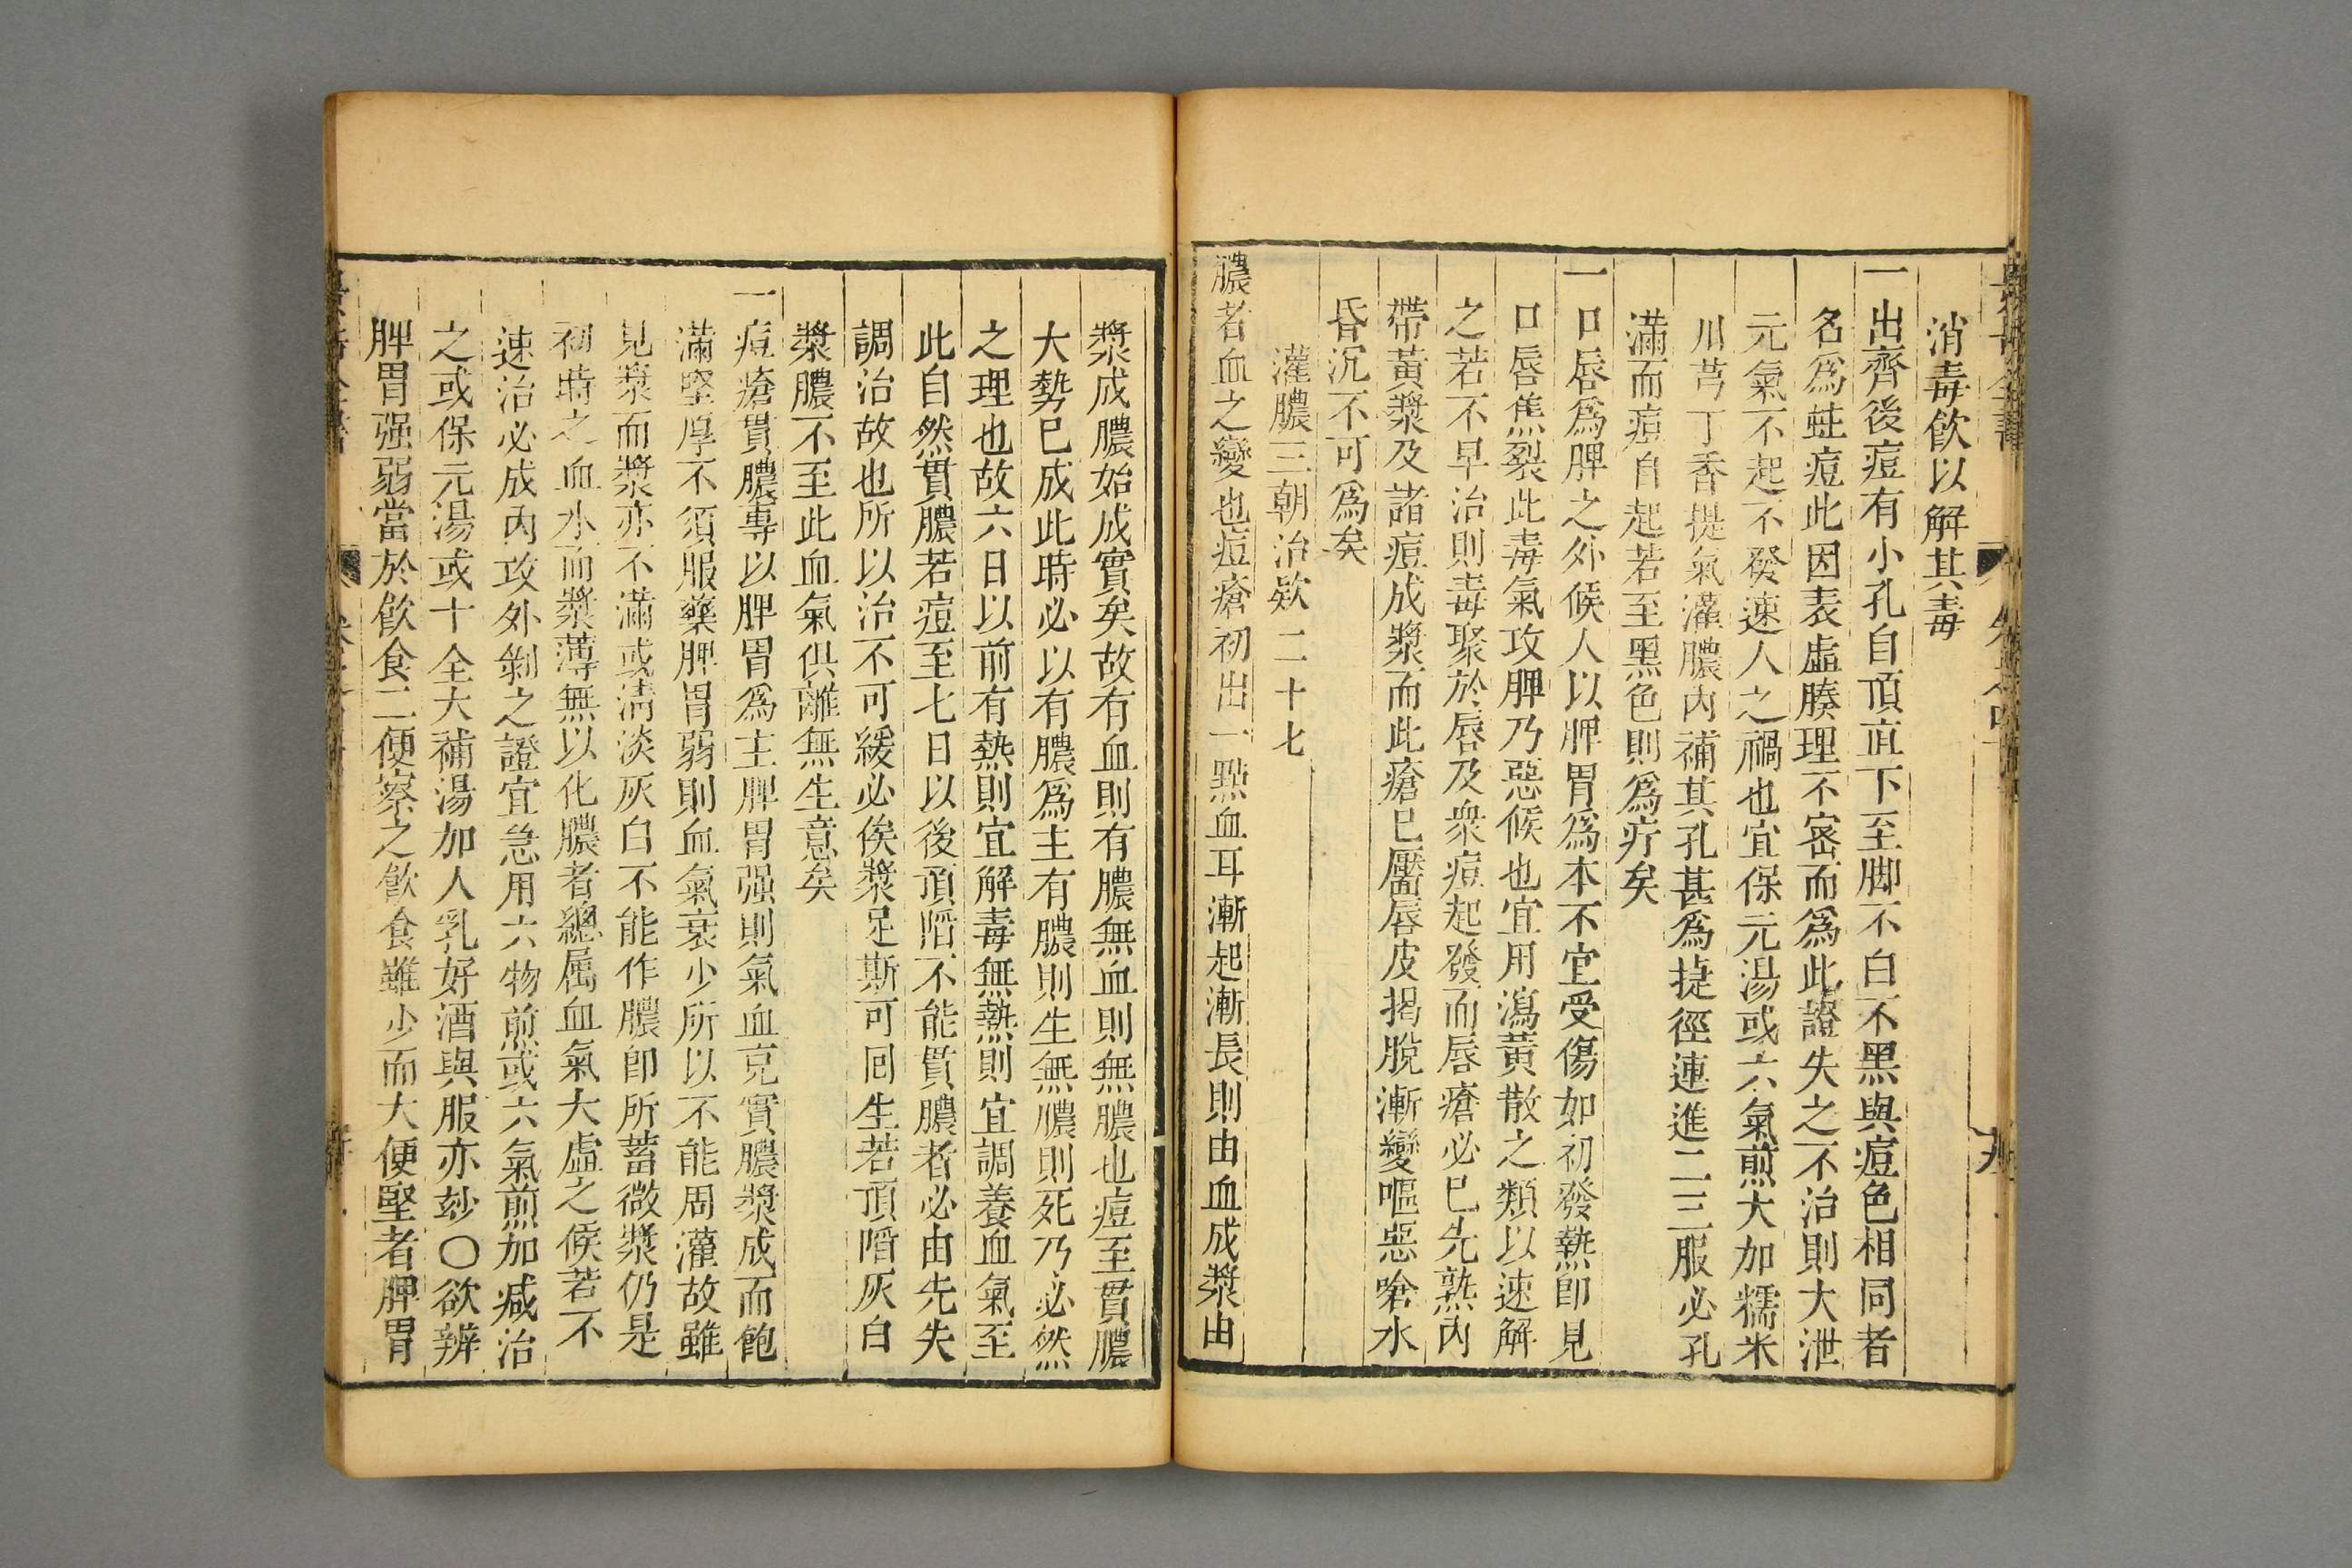 消毒飲以解其毒
一出齊後痘有小孔自頂直下至脚不白不黑與痘色相同者
名爲蛀痘此因表虛腠理不密而爲此證失之不治則大泄
元氣不起不發速人之禍也宜保元湯或六氣煎大加糯米
川芎丁香提氣灌膿內補其孔甚爲捷徑連進二三服必孔
滿而痘自起若至黑色則爲疔矣
一口唇爲脾之外候人以脾胃爲本不宜受傷如初發熱卽見
口唇焦裂此毒氣攻脾乃惡候也宜用瀉黃散之類以速解
之若不早治則毒聚於唇及衆痘起發而唇瘡必已先熟內
帶黃漿及諸痘成漿而此瘡已靨唇皮揭脫漸變嘔惡嗆水
昏沉不可爲矣
灌膿三朝治欵二十七
膿者血之變也痘瘡初出一點血耳漸起漸長則由血成漿由
漿成膿始成實矣故有血則有膿無血則無膿也痘至貫膿
大勢已成此時必以有膿爲主有膿則生無膿則死乃必然
之理也故六日以前有熱則宜解毒無熱則宜調養血氣至
此自然貫膿若痘至七日以後頂陷不能貫膿者必由先失
調治故也所以治不可緩必俟漿足斯可囘生若頂陷灰白
漿膿不至此血氣俱離無生意矣
一痘瘡貫膿專以脾胃爲主脾胃强則氣血充實膿漿成而飽
滿堅厚不須服藥脾胃弱則血氣衰少所以不能周灌故雖
見漿而漿亦不滿或淸淡灰白不能作膿卽所蓄微漿仍是
初時之血水而漿薄無以化膿者總属血氣大虛之候若不
速治必成內攻外剝之證宜急用六物煎或六氣煎加减治
之或保元湯或十全大補湯加人乳好酒與服亦玅〇欲辨
脾胃强弱當於飲食二便察之飲食雖少而大便堅者脾胃